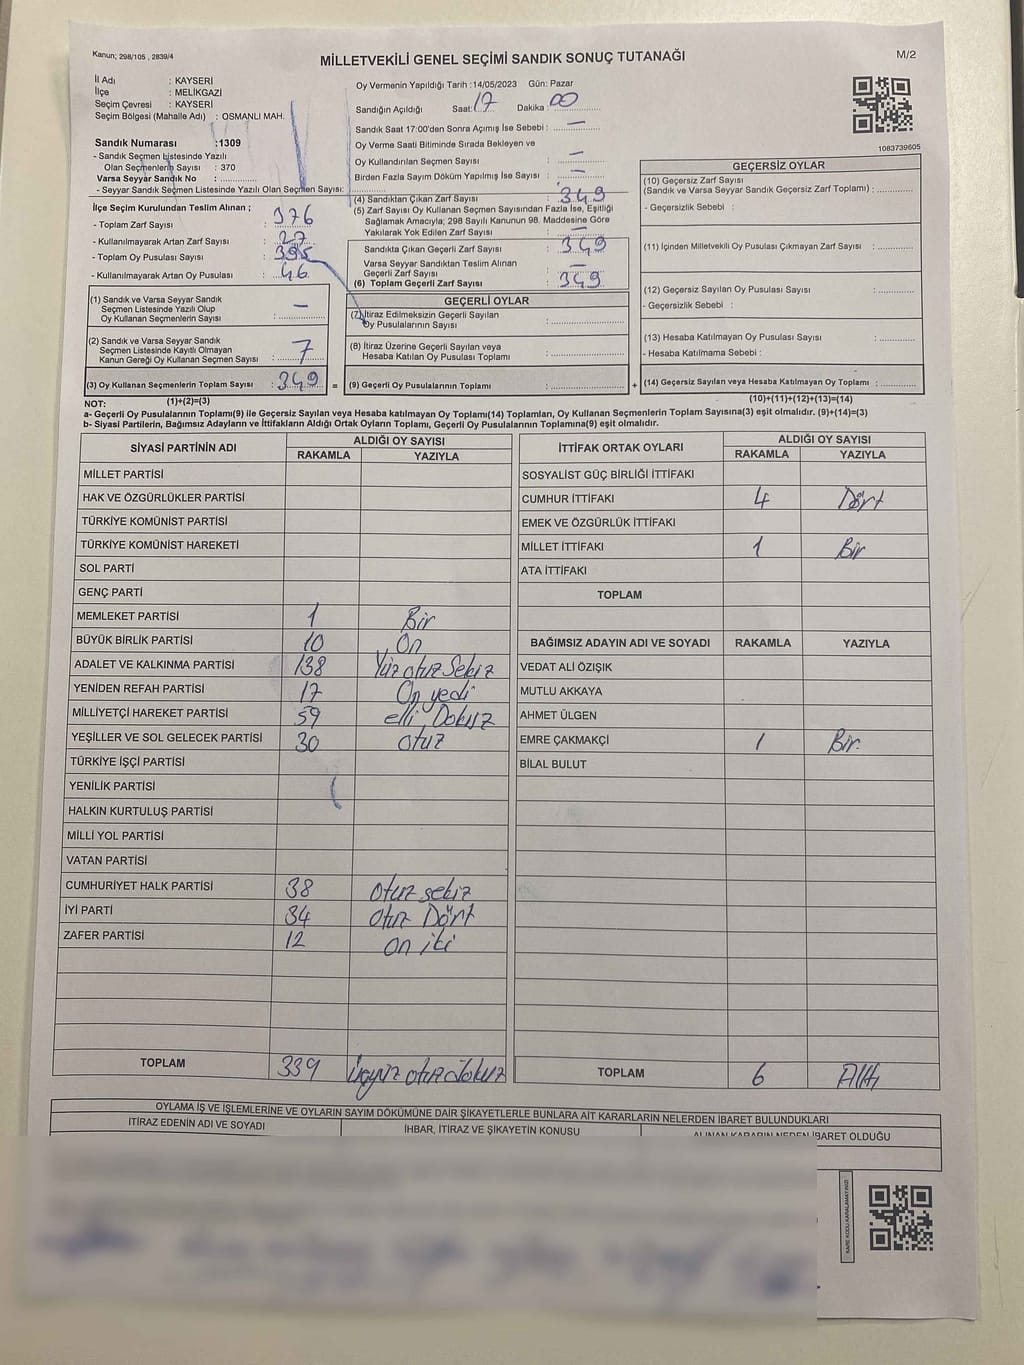 Kanun; 298/105 , 2839/4
MİLLETVEKİLİ GENEL SEÇİMİ SANDIK SONUÇ TUTANAĞI
M/2
İl Adı : KAYSERİ
İlçe : MELİKGAZİ
Seçim Çevresi : KAYSERİ
Seçim Bölgesi (Mahalle Adı) : OSMANLI MAH.
Sandık Numarası :1309
- Sandık Seçmen Listesinde Yazılı
Olan Seçmenlerin Sayısı : 370
Varsa Seyyar Sandık No :
- Seyyar Sandık Seçmen Listesinde Yazılı Olan Seçmen Sayısı:
Oy Vermenin Yapıldığı Tarih :14/05/2023 Gün: Pazar
Sandığın Açıldığı Saat: 17 Dakika : 00
Sandık Saat 17:00'den Sonra Açımış İse Sebebi : —
Oy Verme Saati Bitiminde Sırada Bekleyen ve
Oy Kullandırılan Seçmen Sayısı : —
Birden Fazla Sayım Döküm Yapılmış İse Sayısı : —
1083739605
İlçe Seçim Kurulundan Teslim Alınan ;
- Toplam Zarf Sayısı : 376
- Kullanılmayarak Artan Zarf Sayısı : 27
- Toplam Oy Pusulası Sayısı : 395
- Kullanılmayarak Artan Oy Pusulası : 46
(1) Sandık ve Varsa Seyyar Sandık
Seçmen Listesinde Yazılı Olup
Oy Kullanan Seçmenlerin Sayısı : —
(2) Sandık ve Varsa Seyyar Sandık
Seçmen Listesinde Kayıtlı Olmayan
Kanun Gereği Oy Kullanan Seçmen Sayısı : 7
(3) Oy Kullanan Seçmenlerin Toplam Sayısı : 349
(1)+(2)=(3)
(4) Sandıktan Çıkan Zarf Sayısı : 349
(5) Zarf Sayısı Oy Kullanan Seçmen Sayısından Fazla İse, Eşitliği
Sağlamak Amacıyla; 298 Sayılı Kanunun 98. Maddesine Göre
Yakılarak Yok Edilen Zarf Sayısı : —
Sandıkta Çıkan Geçerli Zarf Sayısı : 349
Varsa Seyyar Sandıktan Teslim Alınan
Geçerli Zarf Sayısı : —
(6) Toplam Geçerli Zarf Sayısı : 349
GEÇERLİ OYLAR
(7) İtiraz Edilmeksizin Geçerli Sayılan
Oy Pusulalarının Sayısı :
(8) İtiraz Üzerine Geçerli Sayılan veya
Hesaba Katılan Oy Pusulası Toplamı :
= (9) Geçerli Oy Pusulalarının Toplamı :
GEÇERSİZ OYLAR
(10) Geçersiz Zarf Sayısı
(Sandık ve Varsa Seyyar Sandık Geçersiz Zarf Toplamı) :
- Geçersizlik Sebebi :
(11) İçinden Milletvekili Oy Pusulası Çıkmayan Zarf Sayısı :
(12) Geçersiz Sayılan Oy Pusulası Sayısı :
- Geçersizlik Sebebi :
(13) Hesaba Katılmayan Oy Pusulası Sayısı :
- Hesaba Katılmama Sebebi :
+ (14) Geçersiz Sayılan veya Hesaba Katılmayan Oy Toplamı :
(10)+(11)+(12)+(13)=(14)
NOT:
a- Geçerli Oy Pusulalarının Toplamı(9) ile Geçersiz Sayılan veya Hesaba katılmayan Oy Toplamı(14) Toplamları, Oy Kullanan Seçmenlerin Toplam Sayısına(3) eşit olmalıdır. (9)+(14)=(3)
b- Siyasi Partilerin, Bağımsız Adayların ve İttifakların Aldığı Ortak Oyların Toplamı, Geçerli Oy Pusulalarının Toplamına(9) eşit olmalıdır.
SİYASİ PARTİNİN ADI ALDIĞI OY SAYISI
RAKAMLA YAZIYLA
MİLLET PARTİSİ
HAK VE ÖZGÜRLÜKLER PARTİSİ
TÜRKİYE KOMÜNİST PARTİSİ
TÜRKİYE KOMÜNİST HAREKETİ
SOL PARTİ
GENÇ PARTİ
MEMLEKET PARTİSİ 1 Bir
BÜYÜK BİRLİK PARTİSİ 10 On
ADALET VE KALKINMA PARTİSİ 138 Yüz otuz Sekiz
YENİDEN REFAH PARTİSİ 17 On yedi
MİLLİYETÇİ HAREKET PARTİSİ 59 elli Dokuz
YEŞİLLER VE SOL GELECEK PARTİSİ 30 otuz
TÜRKİYE İŞÇİ PARTİSİ
YENİLİK PARTİSİ
HALKIN KURTULUŞ PARTİSİ
MİLLİ YOL PARTİSİ
VATAN PARTİSİ
CUMHURİYET HALK PARTİSİ 38 Otuz sekiz
İYİ PARTİ 34 Otuz Dört
ZAFER PARTİSİ 12 on iki
TOPLAM 339 üçyüz otuz dokuz
İTTİFAK ORTAK OYLARI ALDIĞI OY SAYISI
RAKAMLA YAZIYLA
SOSYALİST GÜÇ BİRLİĞİ İTTİFAKI
CUMHUR İTTİFAKI 4 Dört
EMEK VE ÖZGÜRLÜK İTTİFAKI
MİLLET İTTİFAKI 1 Bir
ATA İTTİFAKI
TOPLAM
BAĞIMSIZ ADAYIN ADI VE SOYADI RAKAMLA YAZIYLA
VEDAT ALİ ÖZIŞIK
MUTLU AKKAYA
AHMET ÜLGEN
EMRE ÇAKMAKÇİ 1 Bir.
BİLAL BULUT
TOPLAM 6 Altı
OYLAMA İŞ VE İŞLEMLERİNE VE OYLARIN SAYIM DÖKÜMÜNE DAİR ŞİKAYETLERLE BUNLARA AİT KARARLARIN NELERDEN İBARET BULUNDUKLARI
İTİRAZ EDENİN ADI VE SOYADI İHBAR, İTİRAZ VE ŞİKAYETİN KONUSU ALINAN KARARIN NEDEN İBARET OLDUĞU
KARE KODU KARALAMAYINIZ!